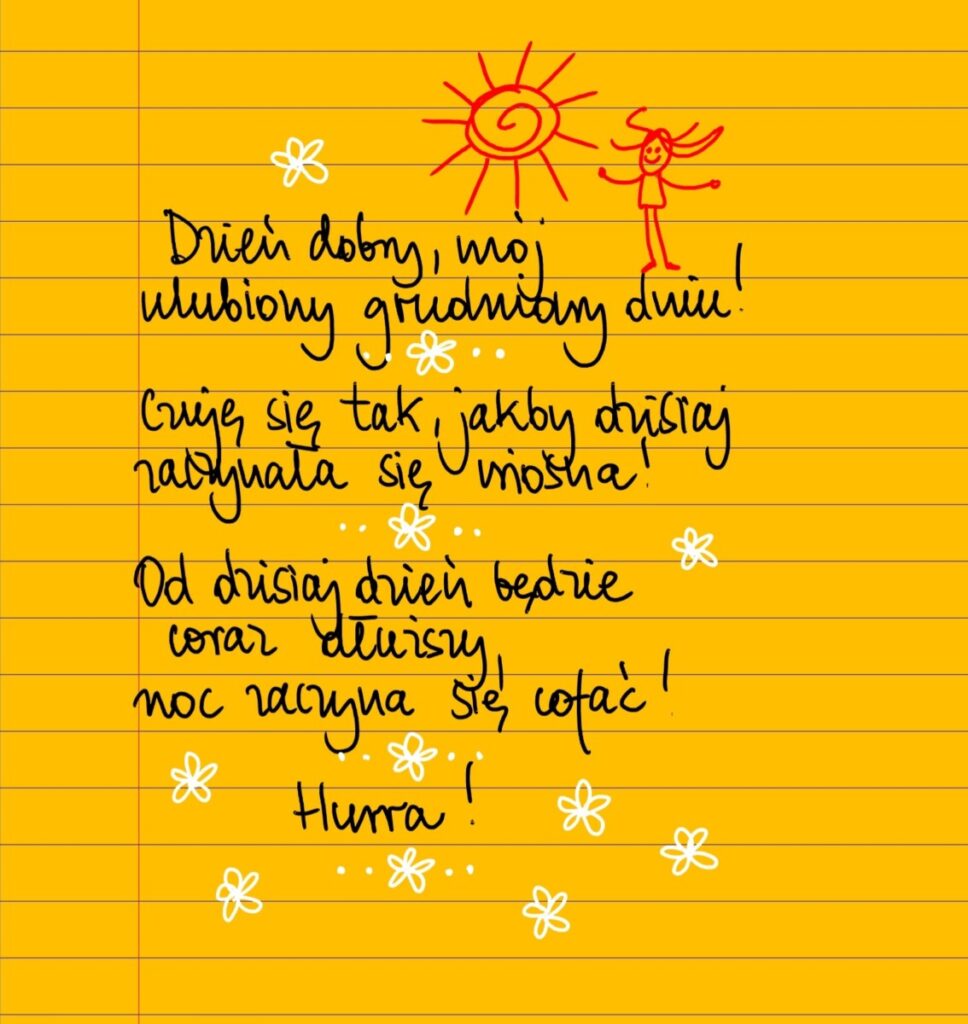 Dzień dobry, mój
ulubiony grudniowy dniu!
Czuję się tak, jakby dzisiaj
zaczynała się wiosna!
Od dzisiaj dzień będzie
coraz dłuższy,
noc zaczyna się cofać!
Hurra!